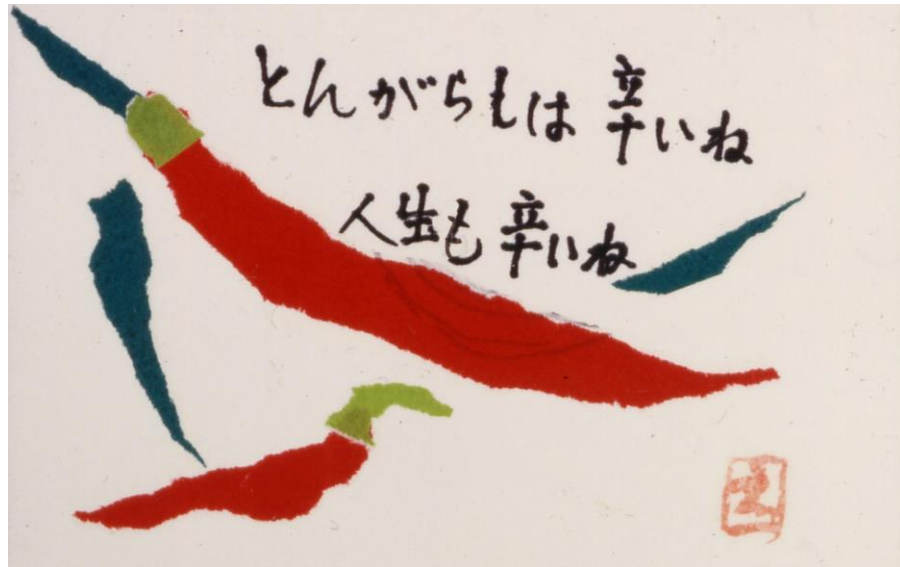 とんがらもは 辛いね
人生も 辛いね